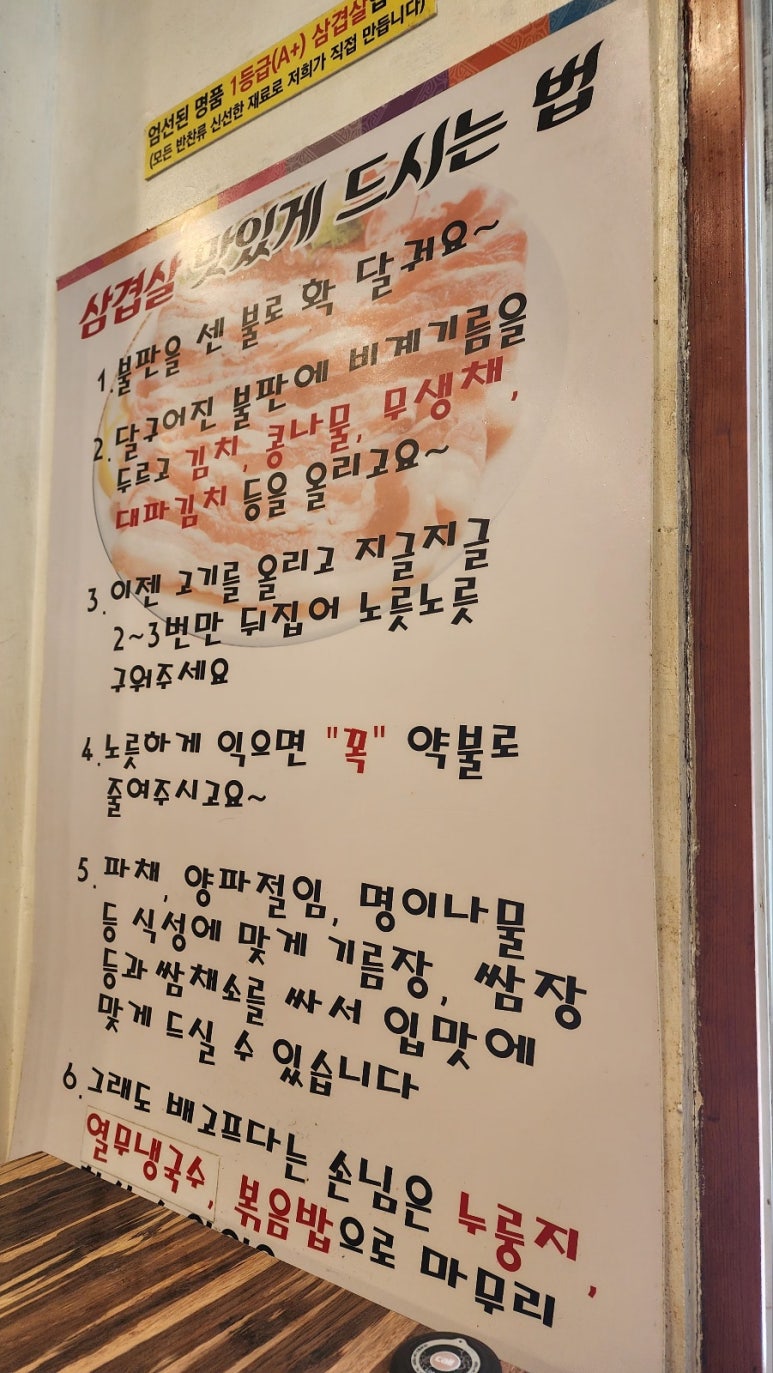 엄선된 명품 1등급(A+) 삼겹살
(모든 반찬류 신선한 재료로 저희가 직접 만듭니다)
삼겹살 맛있게 드시는 법
1. 불판을 센 불로 확 달궈요~
2. 달구어진 불판에 비계기름을
두르고 김치, 콩나물, 무생채,
대파김치 등을 올리고요~
3. 이젠 고기를 올리고 지글지글
2~3번만 뒤집어 노릇노릇
구워주세요
4. 노릇하게 익으면 "꼭" 약불로
줄여주시고요~
5. 파채, 양파절임, 명이나물
등 식성에 맞게 기름장, 쌈장
등과 쌈채소를 싸서 입맛에
맞게 드실 수 있습니다
6. 그래도 배고프다는 손님은 누룽지,
열무냉국수, 볶음밥으로 마무리
Call